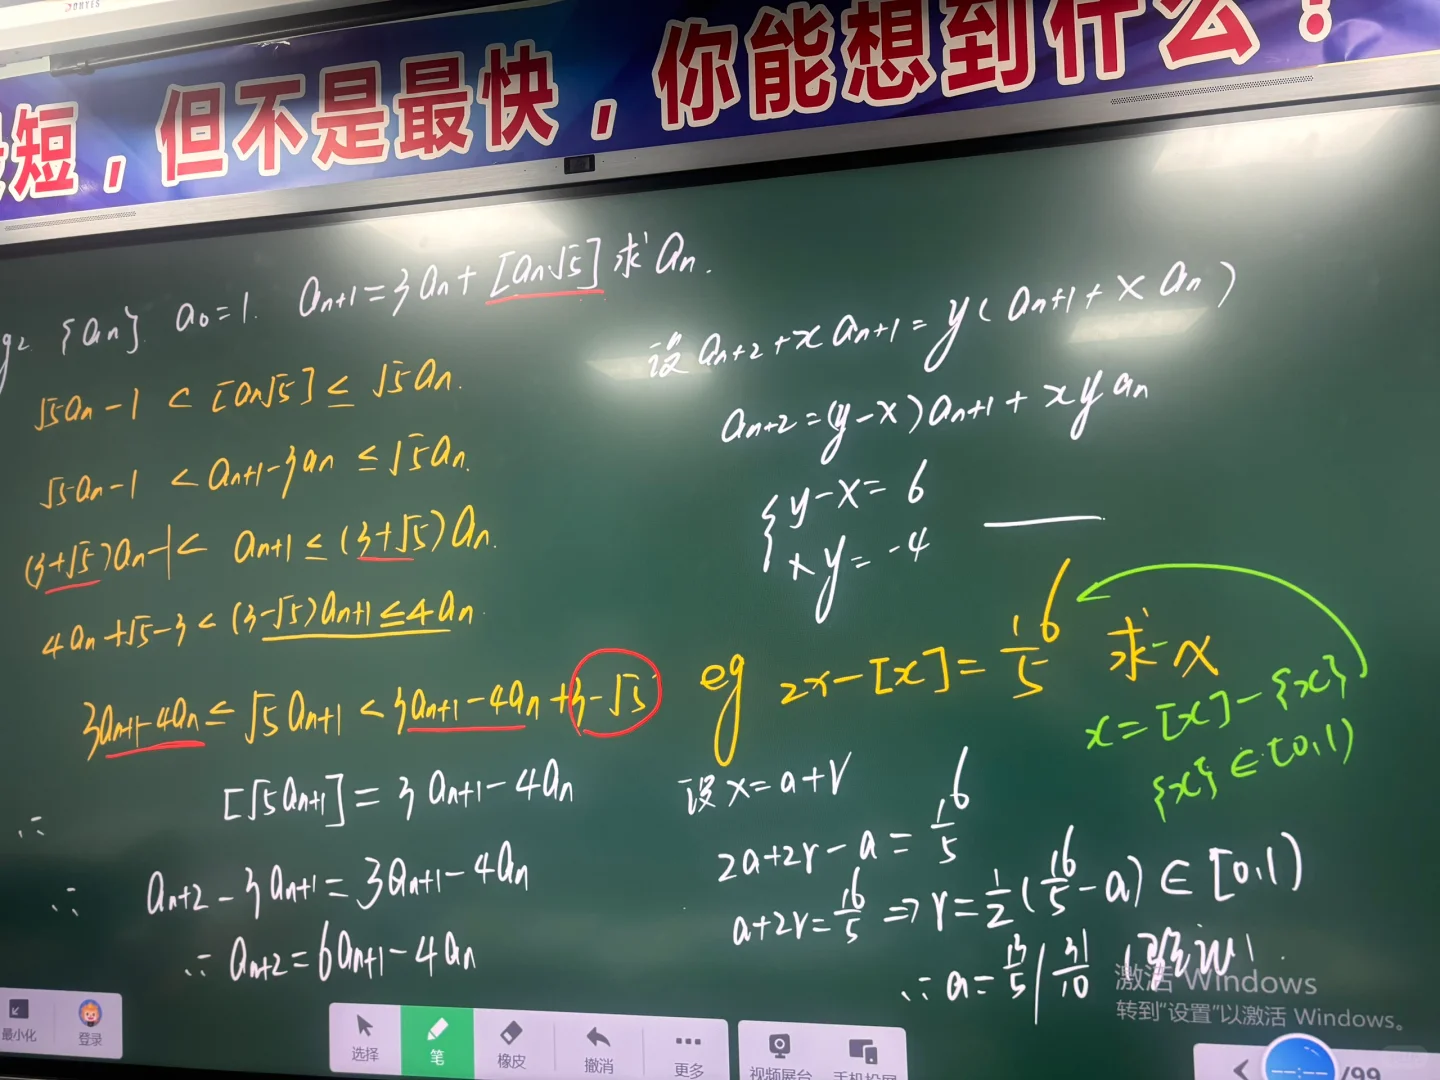 短，但不是最快，你能想到什么！
{an} a₀=1. an+1=3an+[an√5] 求an.
√5an-1 < [an√5] ≤ √5an.
√5an-1 < an+1-3an ≤ √5an.
(3+√5)an-1 < an+1 ≤ (3+√5)an.
4an+√5-3 < (3-√5)an+1 ≤ 4an.
3an+1-4an ≤ √5an+1 < 3an+1-4an+3-√5
∴ [√5an+1] = 3an+1-4an
∴ an+2-3an+1=3an+1-4an
∴ an+2=6an+1-4an
设 an+2+xan+1=y(an+1+xan)
an+2=(y-x)an+1+xyan
{y-x=6
xy=-4
eg 2x-[x]=16/5 求x
x=[x]-{x}
{x}∈[0,1)
设x=a+r
2a+2r-a=16/5
a+2r=16/5 ⇒ r=1/2(16/5-a)∈[0,1)
∴ a=13/5 | 31/10
激活 Windows
转到"设置"以激活 Windows。
最小化
登录
选择
笔
橡皮
撤消
更多
视频展台
手机投屏
/99